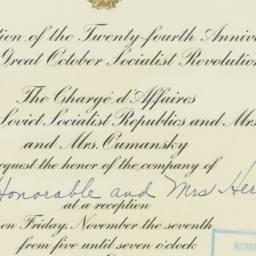 tion of the Twenty-fourth Anniv
Great October Socialist Revolution
The Chargé d'Affaires
Soviet Socialist Republics and Mrs
and Mrs. Oumansky
equest the honor of the company of
Honorable and Mrs Her
at a reception
on Friday, November the seventh
from five until seven o'clock